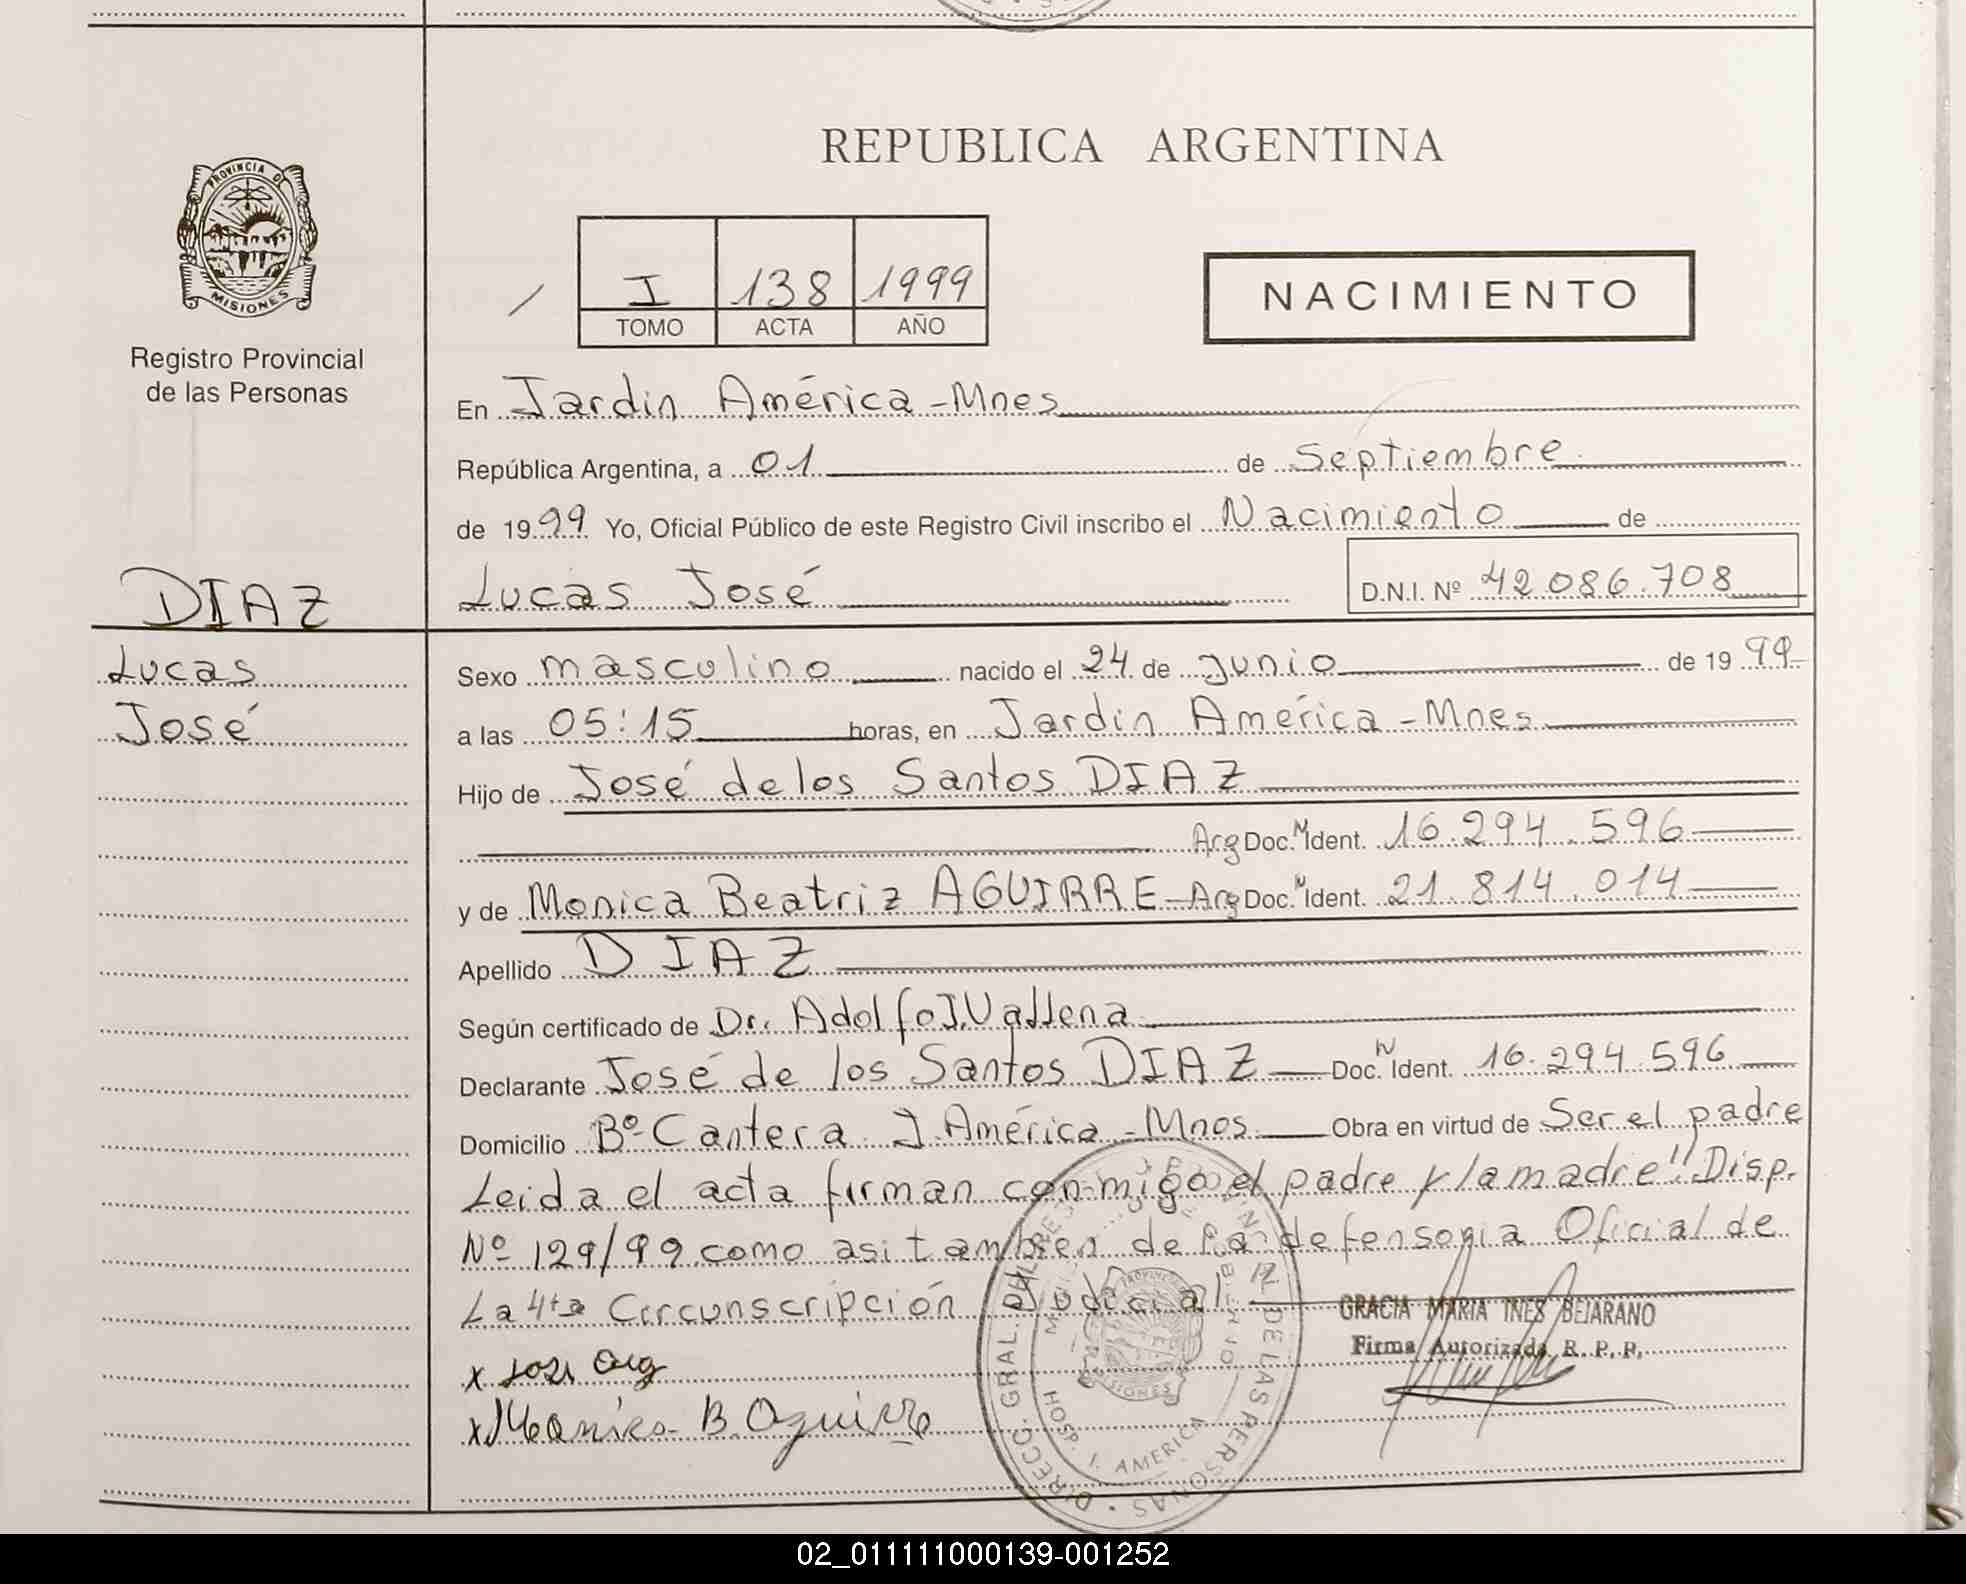 REPUBLICA ARGENTINA
PROVINCIA D
MISIONES
Registro Provincial
de las Personas
I 138 1999
TOMO ACTA AÑO
NACIMIENTO
En Jardin América - Mnes
República Argentina, a 01 de Septiembre
de 1999 Yo, Oficial Público de este Registro Civil inscribo el Nacimiento de
Lucas José D.N.I. Nº 42.086.708
DIAZ
Lucas
José
Sexo masculino nacido el 24 de junio de 1999
a las 05:15 horas, en Jardin América - Mnes
Hijo de José de los Santos DIAZ
Arg Doc. N Ident. 16.294.596
y de Monica Beatriz AGUIRRE - Arg Doc. N Ident. 21.814.014
Apellido DIAZ
Según certificado de Dr. Adolfo J.
Declarante José de los Santos DIAZ Doc. N Ident. 16.294.596
Domicilio Bº Cantera J. América - Mnes Obra en virtud de Ser el padre
Leida el acta firman conmigo el padre y la madre" Disp.
Nº 129/99 como asi tambien de la defensoria Oficial de
La 4ta Circunscripción Judicial"
GRACIA MARIA INES BEJARANO
Firma Autorizada R. P. P.
x
x B. Aguirre
DIRECC. GRAL. DEL REG. PROVINCIAL DE LAS PERSONAS
HOSP. J. AMERICA
MISIONES
02_011111000139-001252